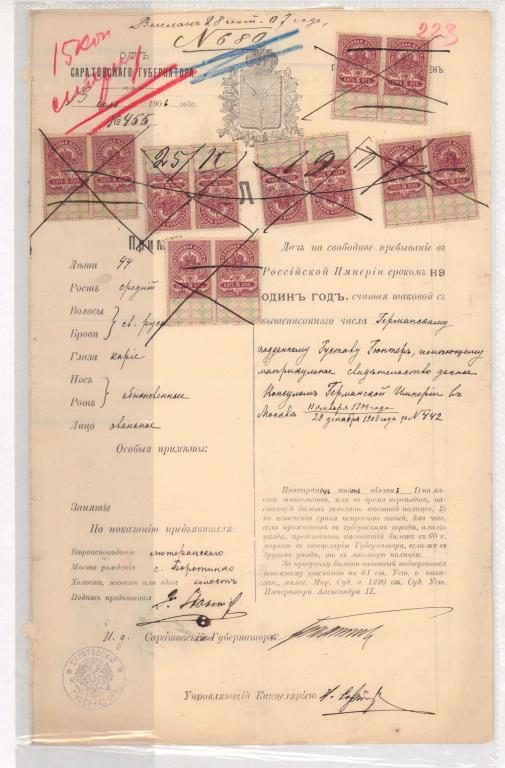 Высланъ 28 окт. 07 года,
№ 680
223
15 коп
ОТЪ
САРАТОВСКАГО ГУБЕРНАТОРА.
5 июля 1906 года.
№ 455
25/
Л
Прим
Лѣта 44
Ростъ средній
Волосы
Брови } св. русы
Глаза каріе
Носъ
Ротъ } обыкновенные
Лицо овальное
Особыя примѣты:
Занятіе
По показанію предъявителя:
Вѣроисповѣданіе лютеранскаго
Мѣсто рожденія с.
Холостъ, женатъ или вдовъ холостъ
Подпись предъявителя
Данъ на свободное пребываніе въ
Россійской Имперіи срокомъ НА
ОДИНЪ ГОДЪ, считая таковой съ
вышеписаннаго числа Германскому
подданному Густаву Гюнтеръ, имѣющему
матрикульное свидѣтельство данное
Консуломъ Германской Имперіи въ
Москвѣ 11 января 1904 года
29 декабря 1903 года за № 442
Иностранецъ этотъ обязанъ 1) на мѣ-
стѣ жительства, или во время переѣздовъ, на-
стоящій билетъ заявлять мѣстной полиціи, 2)
по истеченіи срока испросить новый, для чего,
если проживаетъ въ губернскихъ городахъ, или его
уѣздѣ, представить настоящій билетъ съ 60 к.
марками въ канцелярію Губернатора, если-же въ
другихъ уѣздахъ, то въ мѣстную полицію.
За просрочку билета виновный подвергается
денежному взысканію по 61 ст. Уст. о нака-
зан. налаг. Мир. Суд. и 1220 ст. Суд. Уст.
Императора Александра II.
И. д. Саратовскій Губернаторъ
САРАТОВСКІЙ
ГУБЕРНАТОРЪ
Управляющій Канцеляріею